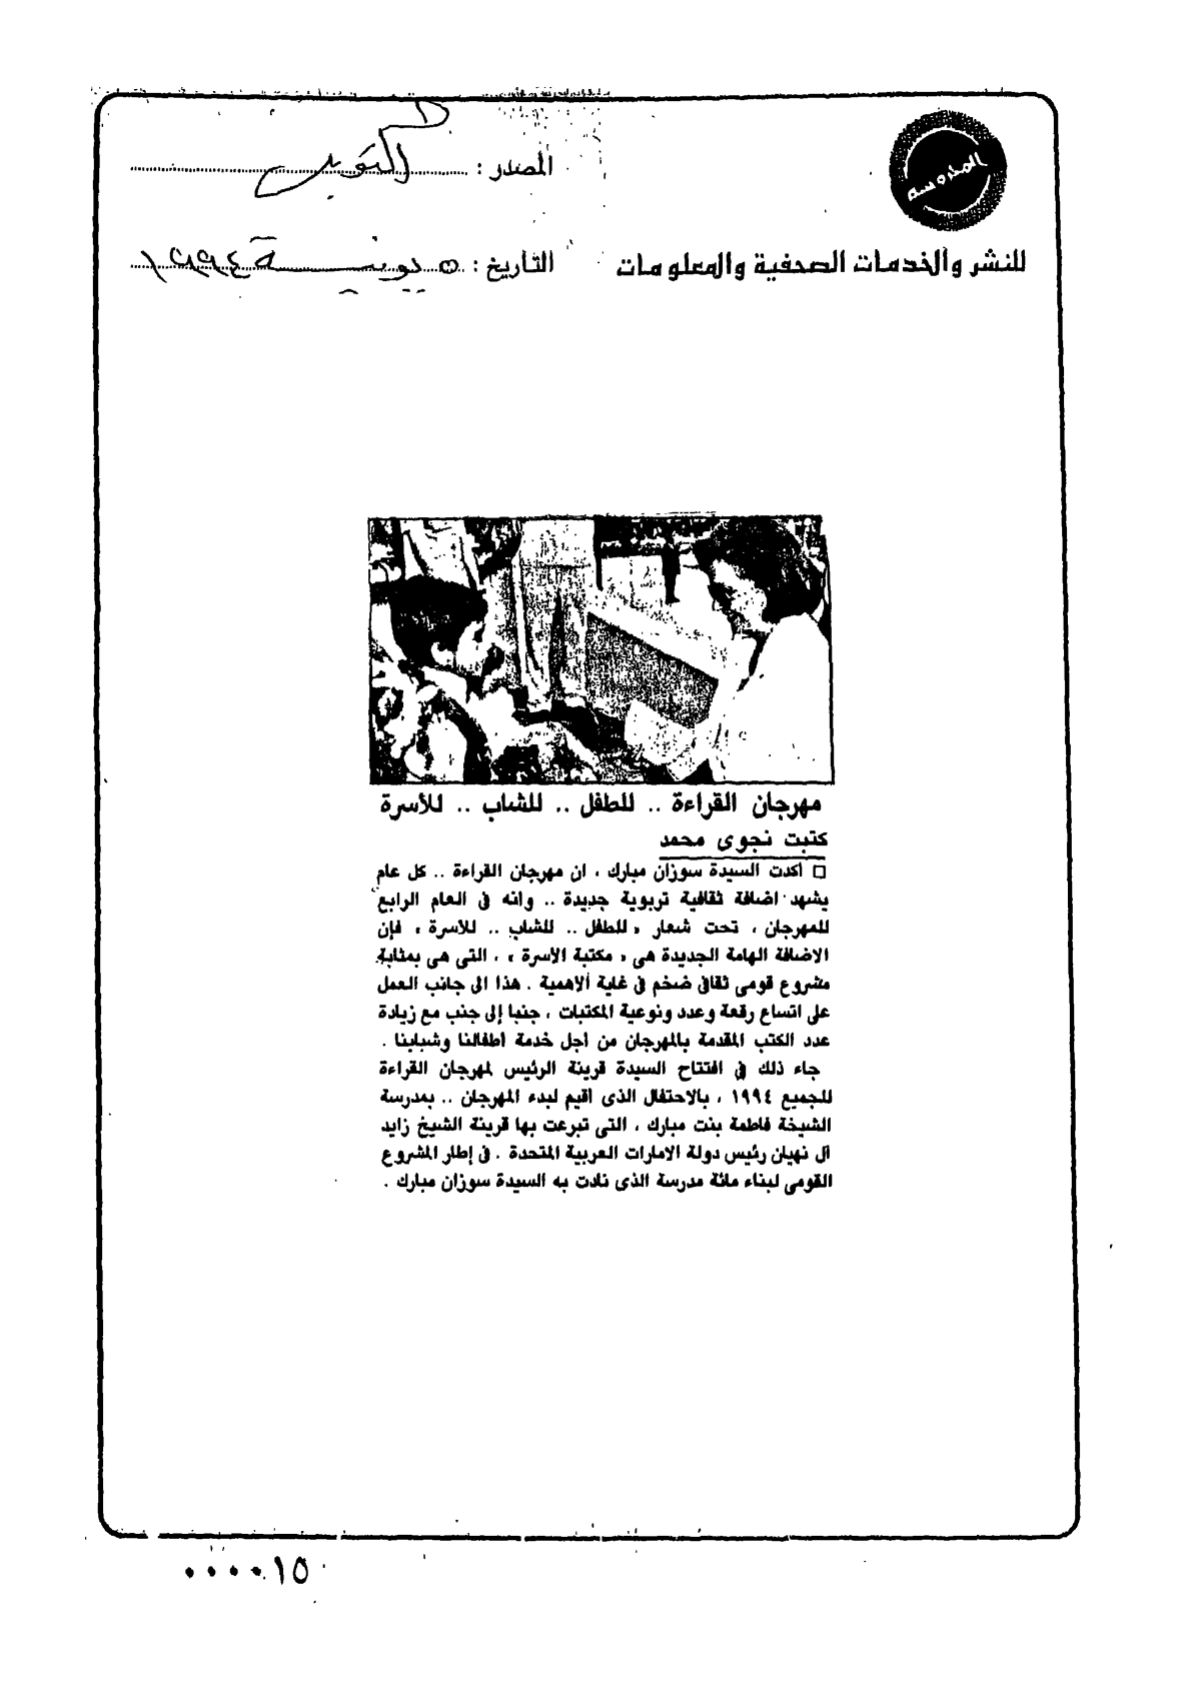 المحروسة
للنشر والخدمات الصحفية والمعلومات
المصدر :
التاريخ : ٥ يونية ١٩٩٤
مهرجان القراءة .. للطفل .. للشاب .. للأسرة
كتبت نجوى محمد
□ أكدت السيدة سوزان مبارك ، ان مهرجان القراءة .. كل عام
يشهد اضافة ثقافية تربوية جديدة .. وانه فى العام الرابع
للمهرجان ، تحت شعار « للطفل .. للشاب .. للأسرة » فإن
الاضافة الهامة الجديدة هى « مكتبة الأسرة » ، التى هى بمثابة
مشروع قومى ثقافى ضخم فى غاية ألاهمية . هذا الى جانب العمل
على اتساع رقعة وعدد ونوعية المكتبات ، جنبا إلى جنب مع زيادة
عدد الكتب المقدمة بالمهرجان من أجل خدمة أطفالنا وشبابنا .
جاء ذلك فى افتتاح السيدة قرينة الرئيس لمهرجان القراءة
للجميع ١٩٩٤ ، بالاحتفال الذى أقيم لبدء المهرجان .. بمدرسة
الشيخة فاطمة بنت مبارك ، التى تبرعت بها قرينة الشيخ زايد
آل نهيان رئيس دولة الامارات العربية المتحدة . فى إطار المشروع
القومى لبناء مائة مدرسة الذى نادت به السيدة سوزان مبارك .
٠٠٠٠١٥